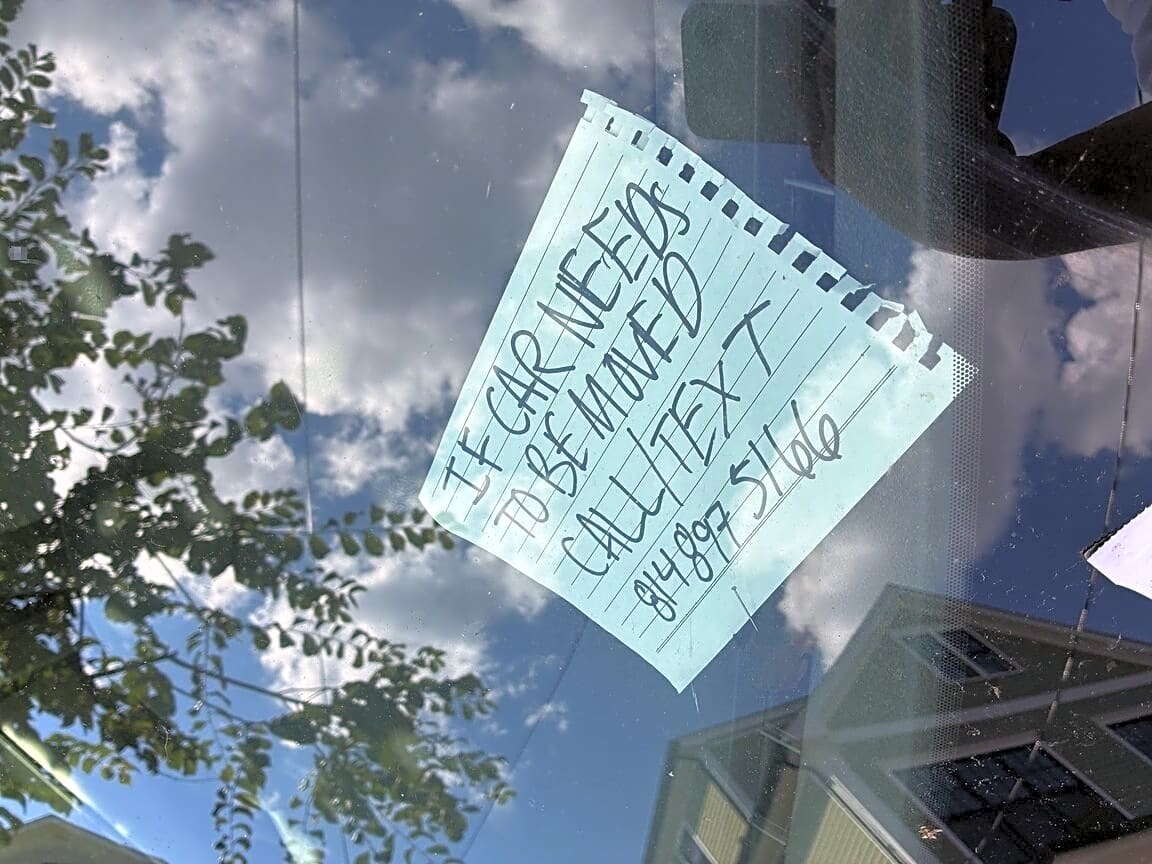 IF CAR NEEDS
TO BE MOVED
CALL/TEXT
814 897 5166